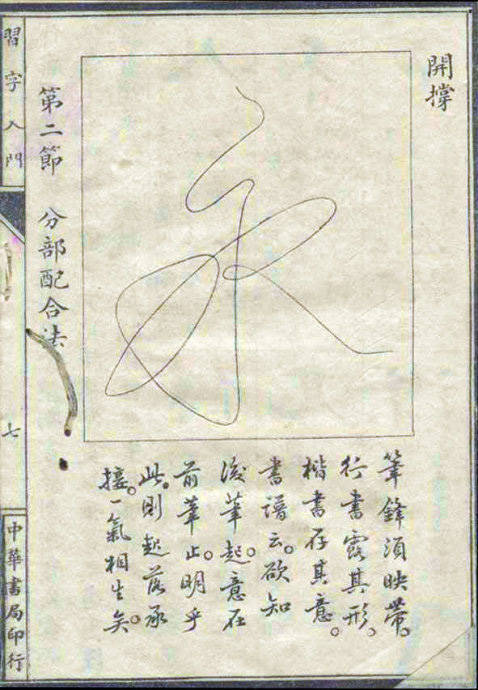 開撐
筆鋒須映帶。
行書露其形。
楷書存其意。
書譜云。欲知
後筆起。意在
前筆止。明乎
此。則起落承
接。一氣相生矣。
第二節 分部配合法
習字入門
七
中華書局印行